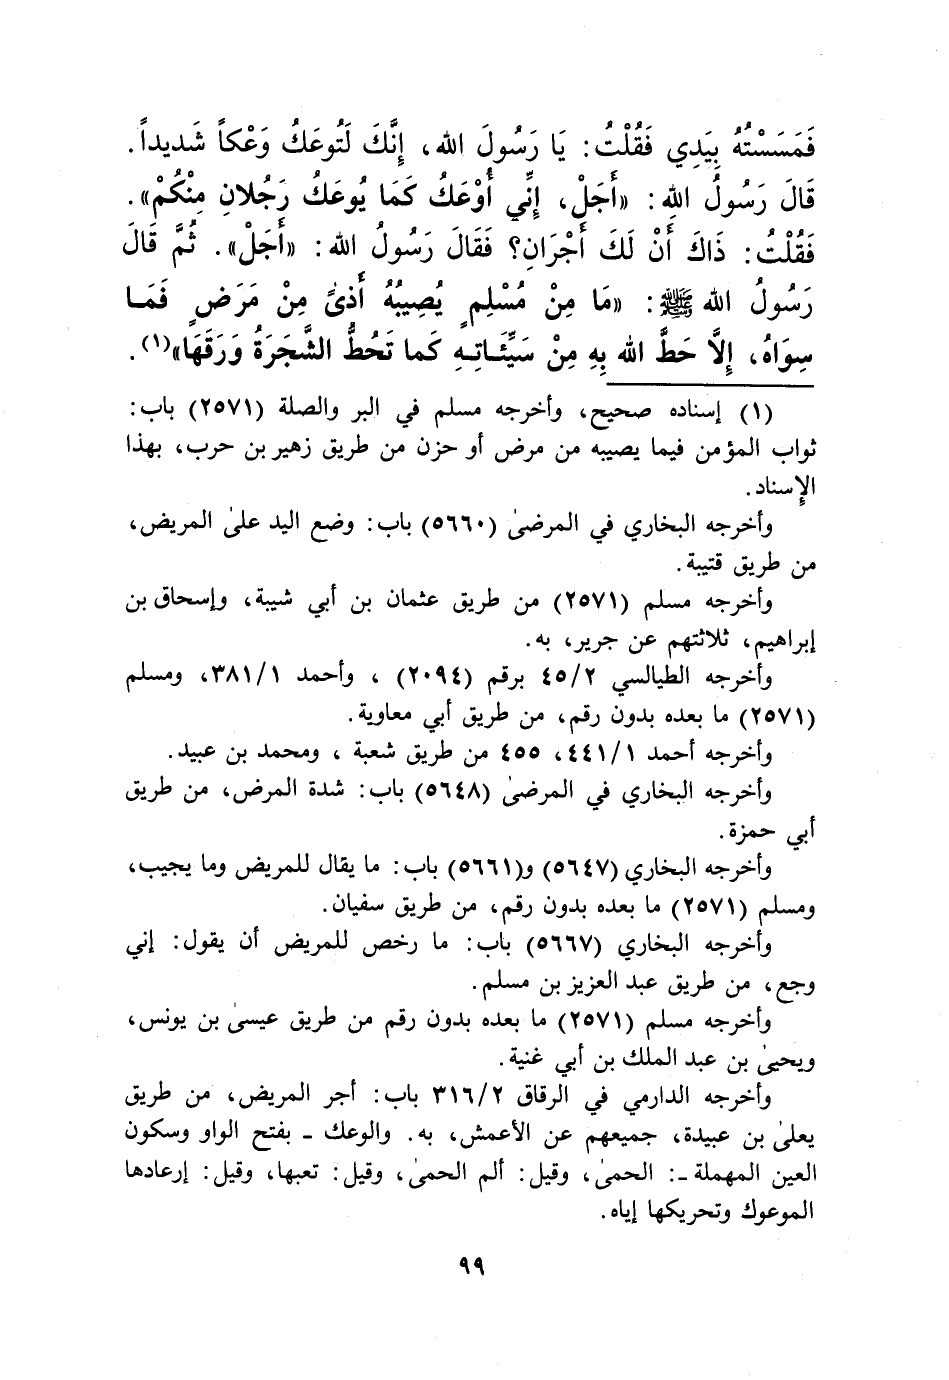 فَمَسَسْتُهُ بِيَدِي فَقُلْتُ: يَا رَسُولَ الله، إِنَّكَ لَتُوعَكُ وَعْكاً شَديداً.
قَالَ رَسُولُ اللهِ: «أَجَلْ، إِنِّي أُوْعَكُ كَمَا يُوعَكُ رَجُلانِ مِنْكُمْ».
فَقُلْتُ: ذَاكَ أَنْ لَكَ أَجْرَانِ؟ فَقَالَ رَسُولُ الله: «أَجَلْ». ثُمَّ قَالَ
رَسُولُ الله ﷺ: «مَا مِنْ مُسْلِمٍ يُصِيبُهُ أَذىً مِنْ مَرَضٍ فَمَا
سِوَاهُ، إِلَّا حَطَّ الله بِهِ مِنْ سَيِّئَاتِهِ كَما تَحُطُّ الشَّجَرَةُ وَرَقَهَا»(١).
(١) إسناده صحيح، وأخرجه مسلم في البر والصلة (٢٥٧١) باب:
ثواب المؤمن فيما يصيبه من مرض أو حزن من طريق زهير بن حرب، بهذا
الإسناد.
وأخرجه البخاري في المرضىٰ (٥٦٦٠) باب: وضع اليد علىٰ المريض،
من طريق قتيبة.
وأخرجه مسلم (٢٥٧١) من طريق عثمان بن أبي شيبة، وإسحاق بن
إبراهيم، ثلاثتهم عن جرير، به.
وأخرجه الطيالسي ٤٥/٢ برقم (٢٠٩٤) ، وأحمد ٣٨١/١، ومسلم
(٢٥٧١) ما بعده بدون رقم، من طريق أبي معاوية.
وأخرجه أحمد ٤٤١/١، ٤٥٥ من طريق شعبة ، ومحمد بن عبيد.
وأخرجه البخاري في المرضىٰ (٥٦٤٨) باب: شدة المرض، من طريق
أبي حمزة.
وأخرجه البخاري (٥٦٤٧) و(٥٦٦١) باب: ما يقال للمريض وما يجيب،
ومسلم (٢٥٧١) ما بعده بدون رقم، من طريق سفيان.
وأخرجه البخاري (٥٦٦٧) باب: ما رخص للمريض أن يقول: إني
وجع، من طريق عبد العزيز بن مسلم.
وأخرجه مسلم (٢٥٧١) ما بعده بدون رقم من طريق عيسىٰ بن يونس،
ويحيىٰ بن عبد الملك بن أبي غنية.
وأخرجه الدارمي في الرقاق ٣١٦/٢ باب: أجر المريض، من طريق
يعلىٰ بن عبيدة، جميعهم عن الأعمش، به. والوعك ـ بفتح الواو وسكون
العين المهملة ـ: الحمىٰ، وقيل: ألم الحمىٰ، وقيل: تعبها، وقيل: إرعادها
الموعوك وتحريكها إياه.
٩٩